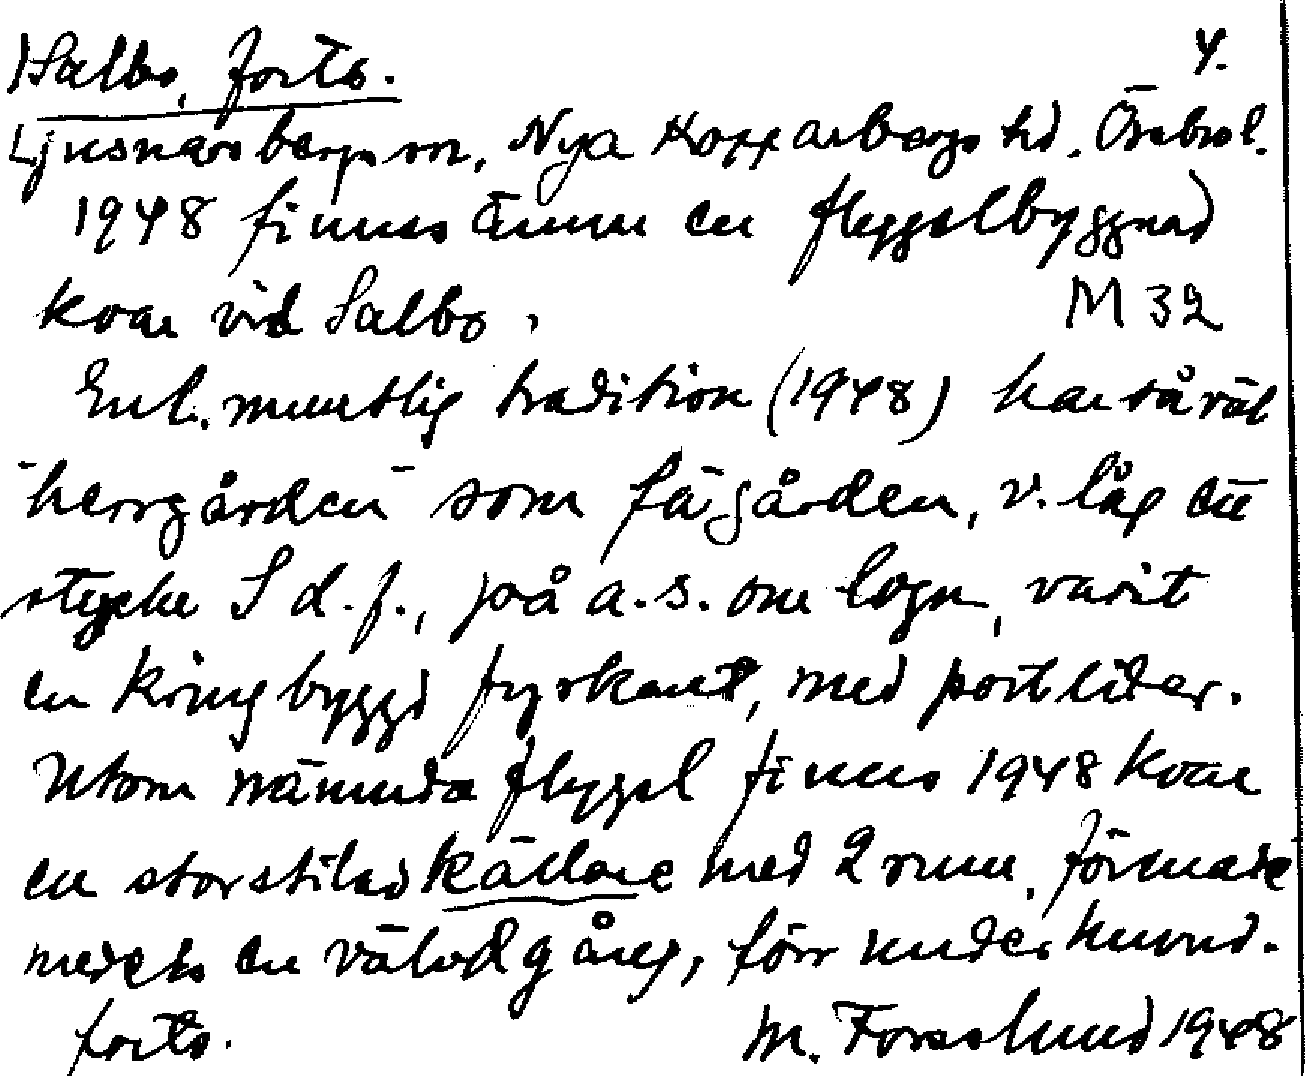 Salbo, forts. 4.
Ljusnarsbergs sn, Nya Kopparbergs hd. Örebro l.
1948 finnes ännu en flyggelbyggnad
kvar vid Salbo. M 32
Enl. muntlig tradition (1948) har såväl
"herrgården" som fägården, v. låg ett
stycke S d.f., på a.s. om logn, varit
en kringbyggd fyrkant, med portlider.
Utom nämnda flygel finnes 1948 kvar
en storstilad källare med 2 rum, förenade
medels en välvd gång, förr under huvud-
forts. M. Forsslund 1948